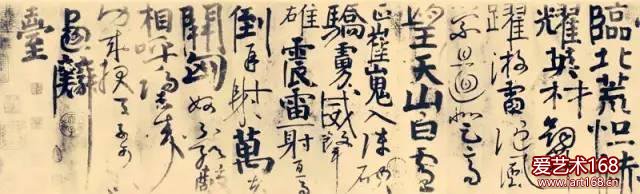 臨北荒
耀英材劍
躍游雷隨風
縈且迴登高
望天山白雪
正崔嵬入陣破
驕虜威聲
雄震雷一射百馬
倒再射萬夫
開匈奴不敢敵
相呼歸去來
功成報天子可
以畫麟
臺
爱艺术168
www.art168.cn